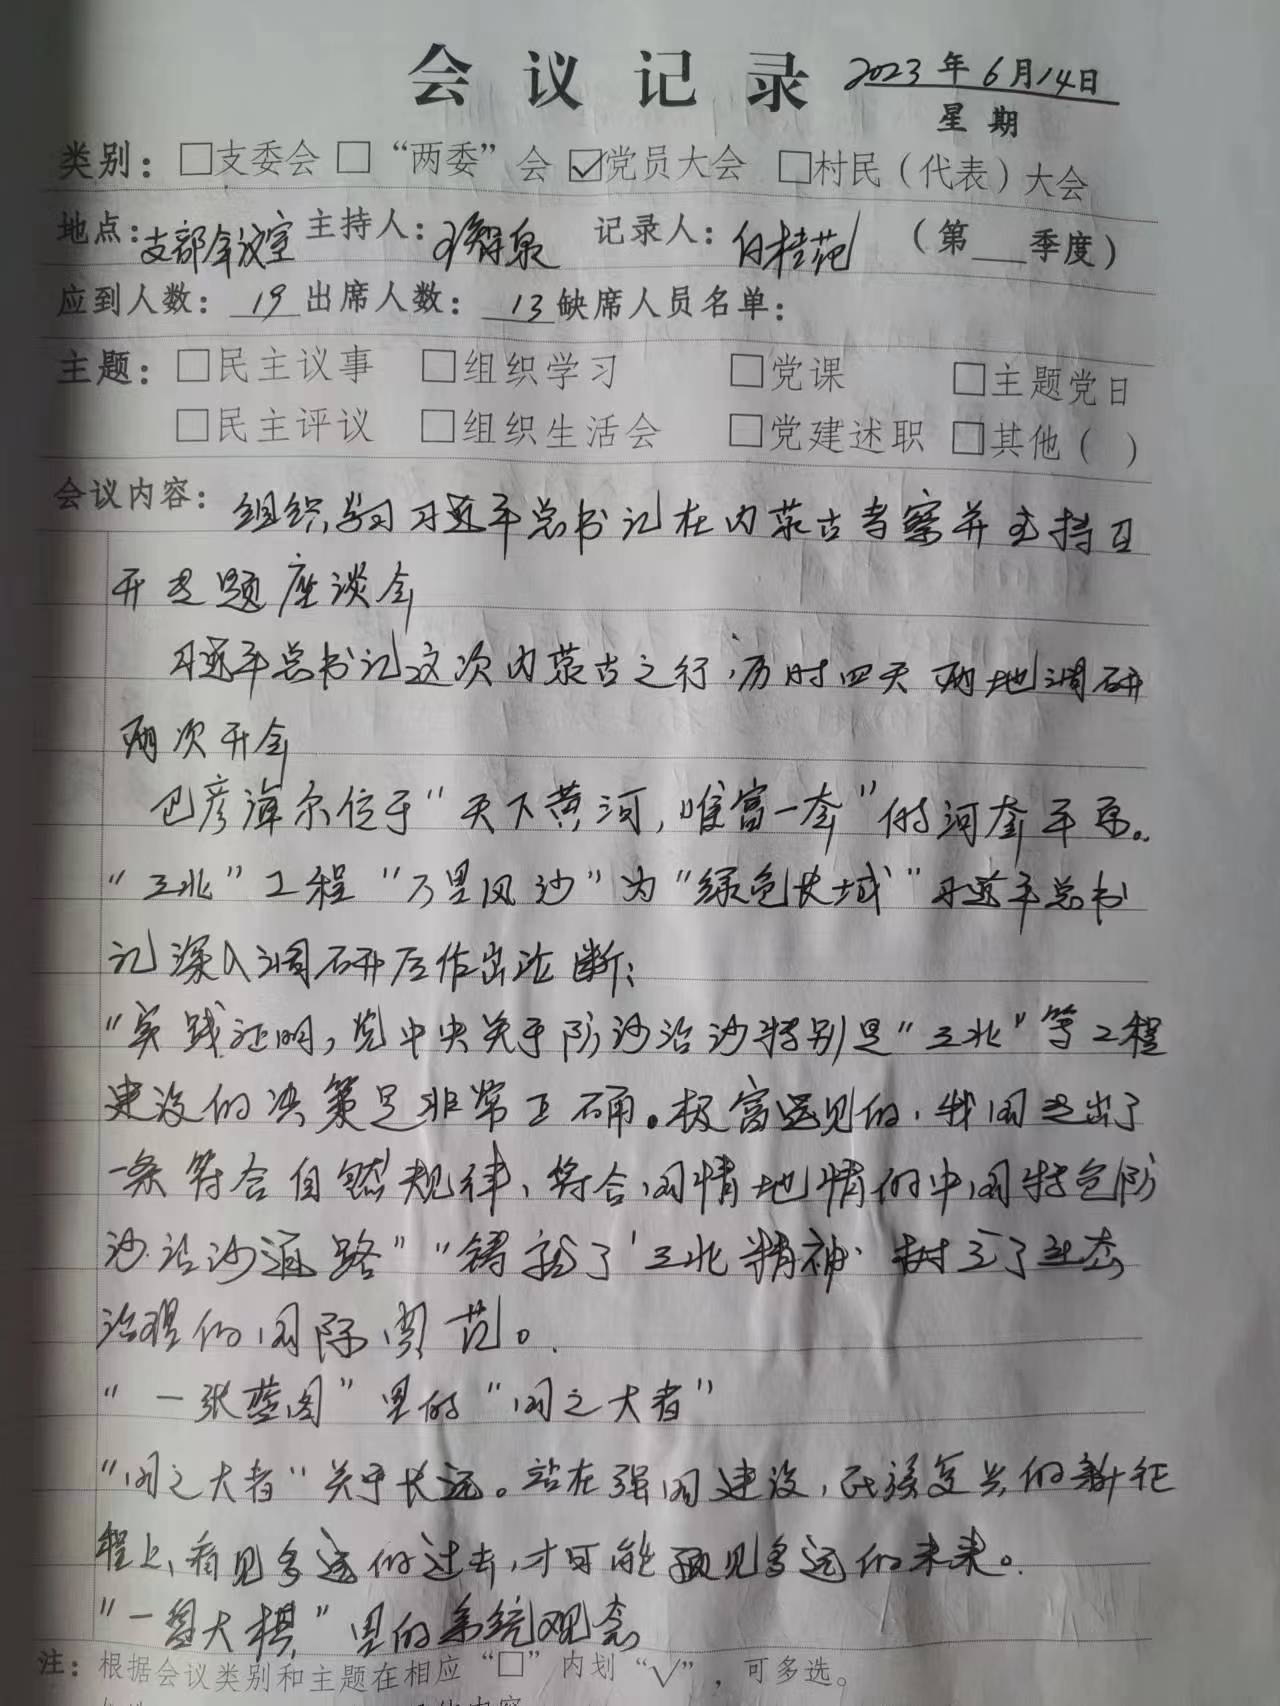 会议记录 2023年6月14日
星期
类别：□支委会 □“两委”会 ☑党员大会 □村民（代表）大会
地点：支部会议室 主持人： 记录人：白桂花 （第___季度）
应到人数：19 出席人数：13 缺席人员名单：
主题：□民主议事 □组织学习 □党课 □主题党日
□民主评议 □组织生活会 □党建述职 □其他（ ）
会议内容：组织学习习近平总书记在内蒙古考察并主持召
开专题座谈会
习近平总书记这次内蒙古之行，历时四天 两地调研
两次开会
巴彦淖尔位于“天下黄河，唯富一套”的河套平原。
“三北”工程“万里风沙”为“绿色长城”习近平总书
记深入调研后作出论断：
“实践证明，党中央关于防沙治沙特别是“三北”等工程
建设的决策是非常正确。极富远见的，我国走出了
一条符合自然规律、符合国情地情的中国特色防
沙治沙道路”“铸就了‘三北精神’树立了生态
治理的国际典范。
“一张蓝图”里的“国之大者”
“国之大者”关乎长远。站在强国建设，民族复兴的新征
程上，看见多远的过去，才可能预见多远的未来。
“一盘大棋”里的系统观念
注：根据会议类别和主题在相应“□”内划“√”，可多选。